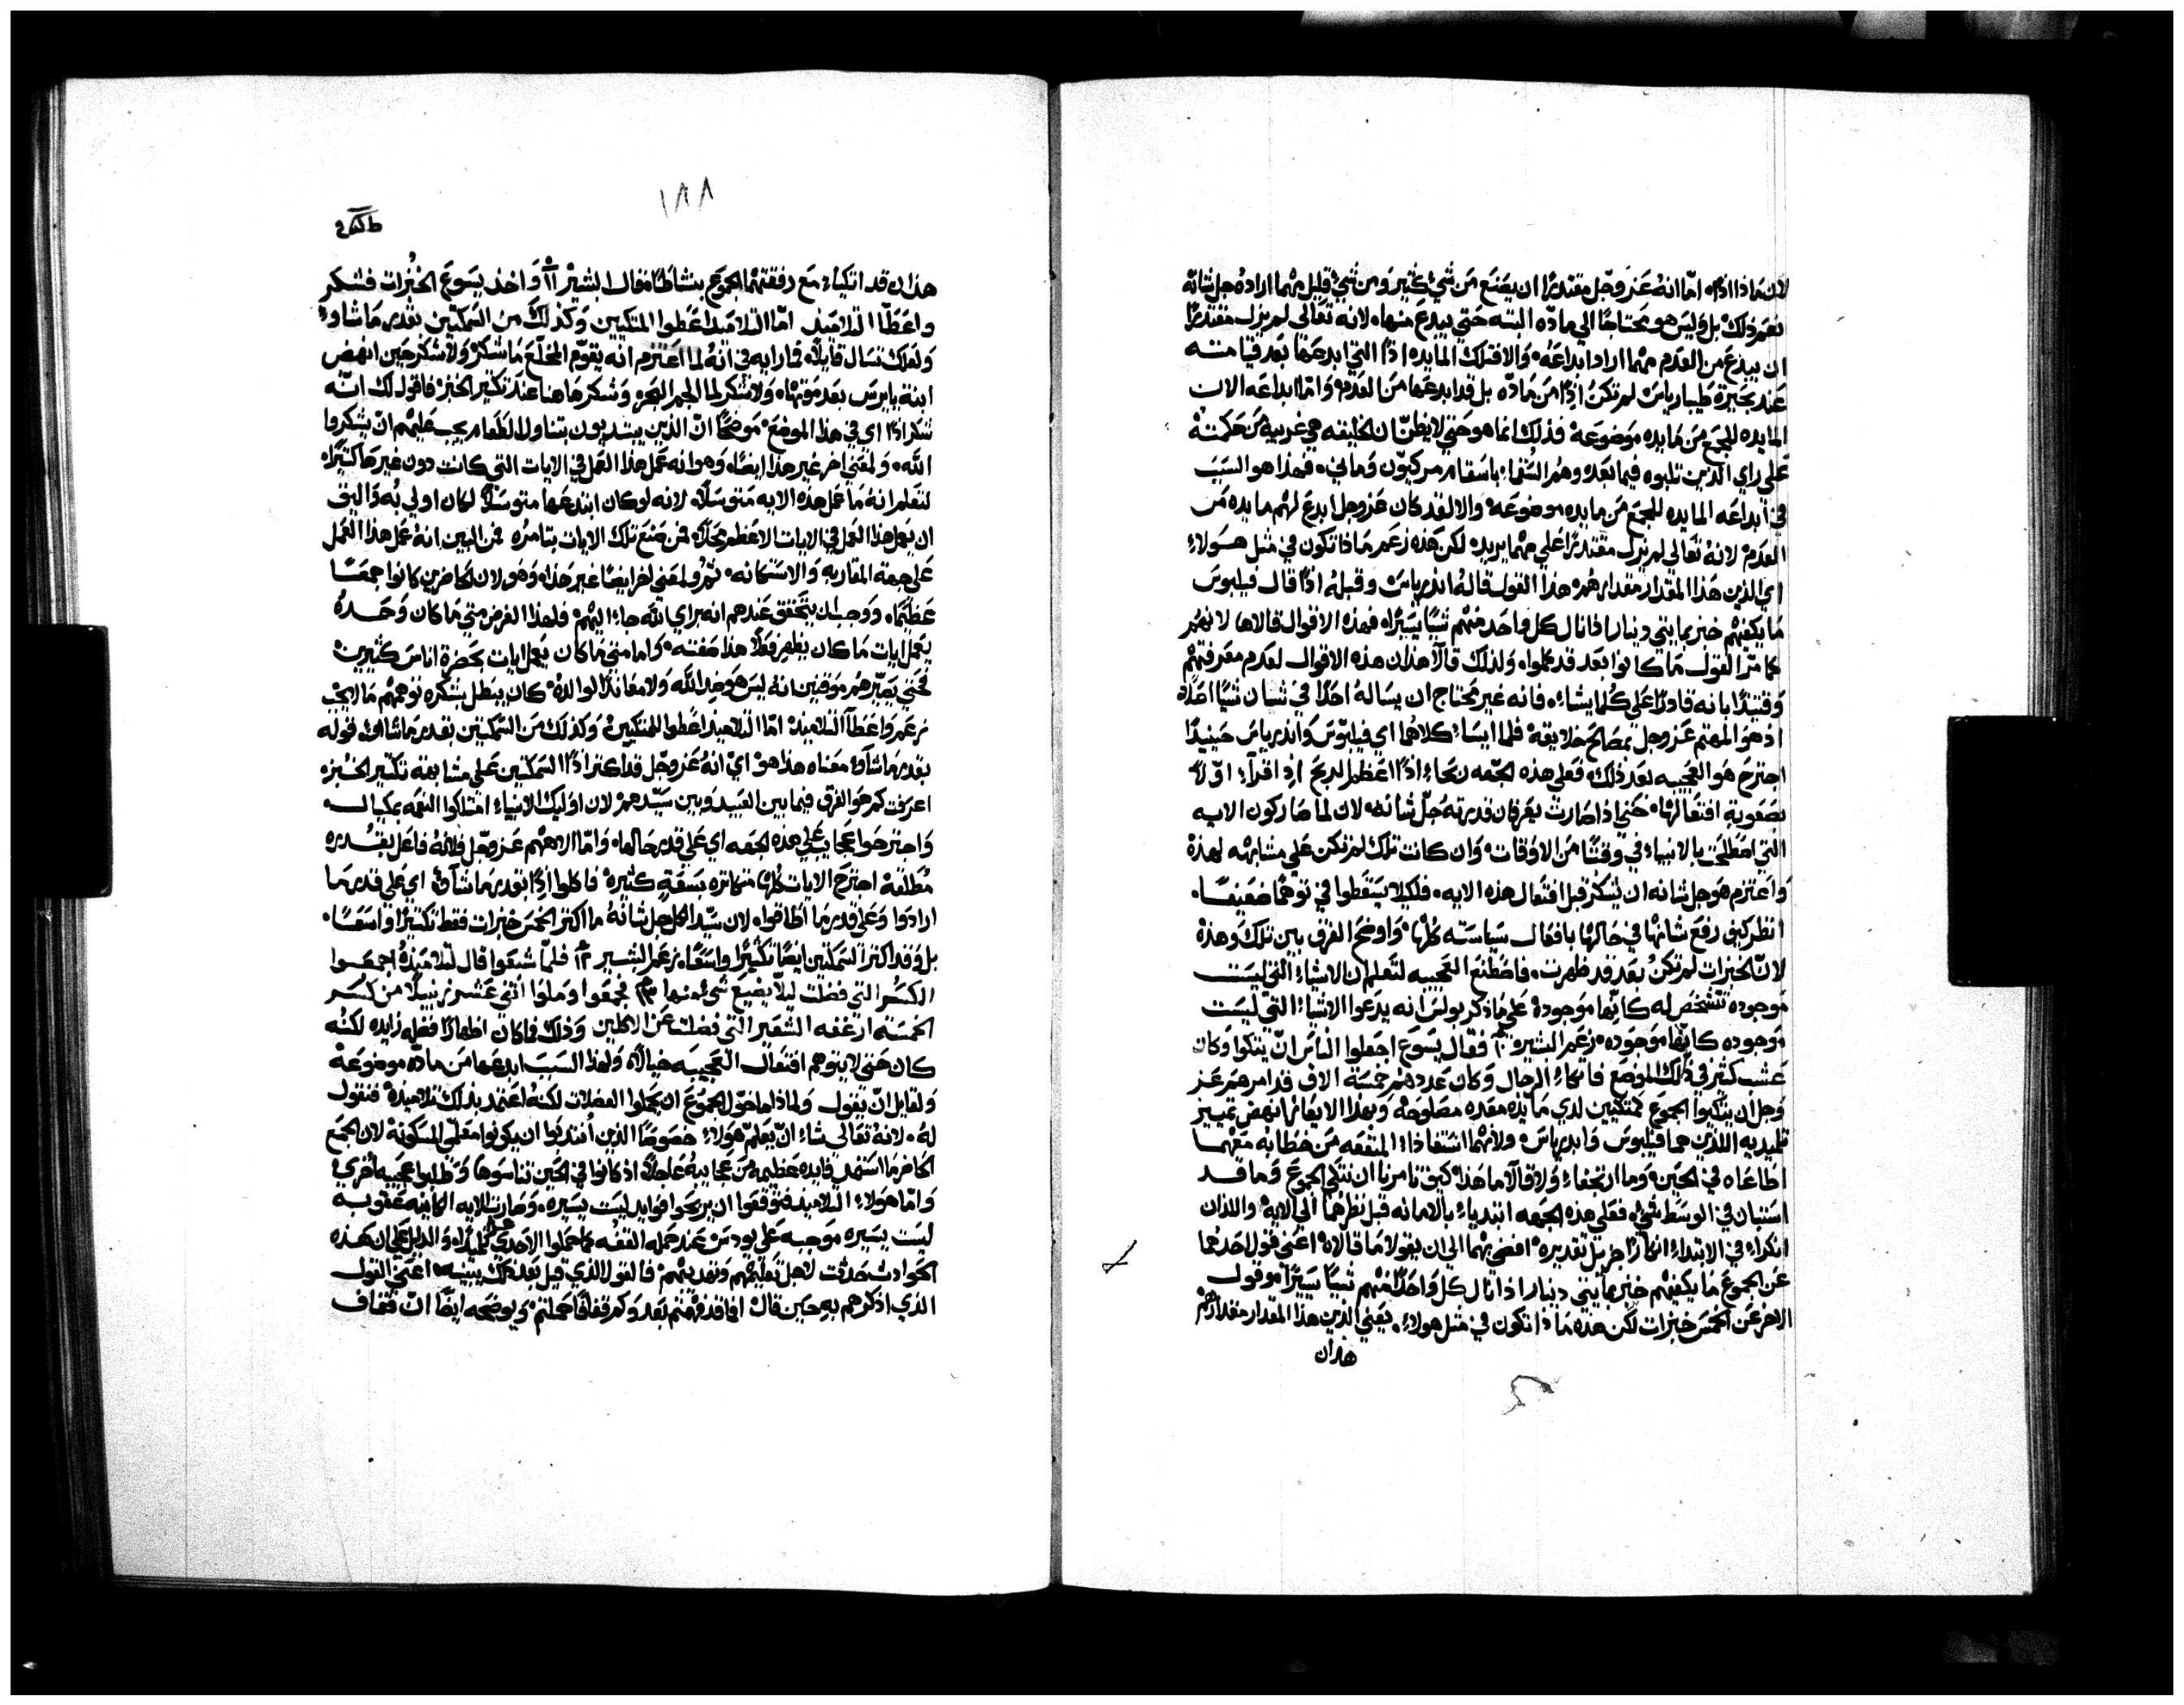 لان مَاذا اذًا، امّا انهُ عَز وجّل مقتدرًا ان يصَنع مَن شيْ كثير وَمن شيْ قليل مهْما ارادهُ جل شانهُ
نعَمر ذلك بل وَليسَ هو محَتاجًا الي مادّه البتـه حَتي يبدع منهاه لانه تعَالي لم يزل مقتدرًا
ان يبدع من العَدم مهْما اراد ابداعَهُ وَالا فتلك المايده اذًا التي ابدعَها بَعد قيامتـه
عَند بحَيرة طيباريَاسْ لم تكنْ اذًا مَن مَادّه بل قد ابدعَها مَن العَدم وَامّا ابداعَه الان
المايده للجمع مَن مَايده موَضوعَهْ فذلك انما هو حَتي لا يظن ان الخليقه هي غريبه مَن حَكمتهْ
عَلي راي الذين تلبوه فيما بَعد وهمر السُّقما باسَقام مركيوّن وَماني، فهذا هو السَببَ
في ابداعَه المايده للجمع مَن مايده موضوعَهْ والا لقد كان عَز وجل ابدع لهم مايده مَن
العَدم لانهُ تعَالي لم يزل مقتدرًا عَلي مهما يريد لكن هَذه زعَم مَاذا تكون في مثل هـَولاءِ
اي الذين هَذا المقدار مقدارهمر هذا القول قالهُ اندرياسْ وَقبلهُ اذًا قال فيلبوسَ
مَا يكفيهم خبز بمايتي دينارا ذا نال كل وَاحَد منهْم شيًا يسَيرًاه فهَذه الاقوال قالاها لانهم
كما مرّ القول مَا كانوا بَعد قد كملوا، وَلذلك قالا هَذان هذه الاقوال لعَدم معَرفتهْم
وَقتيذًا بانه قادرًا عَلي كلما يشاء، فانه غير محَتاج ان يسَالهُ احَدًا في شان شيًا اصَلاً
اذ هوَ المهتم عَز وجل بمصَالح خلايقهْ فلما ايسَاءْ كلاهُما اي فيلبّوسَ وَاندرياسَ حَينيذًا
اجترحَ هوَ العَجيبه بَعد ذلك، فعَلي هذه الجَهه نحَاء اذًا اعَظم الربح اذ اقراء اوّلاً
بصَعَوبة افتعَالهاْ حَتي اذا صَارتْ يعَرفان قدرته جَلّ شانه لان لما صَار كون الايه
التي اصَطلحَت بالانبياء في وقتًا مَن الاوَقات وَان كانت تلك لم تكن عَلي مشابهْه لهذهْ
وَاعَتزم هوَ جل شانه ان يشكرْ قبل افتعَال هذه الايه، فلكيلا يسَقطوا في توهمًا ضعَيفًا.
انظر كيف رفعَ شانهْا في حَالهْا بافعَال سَياسَته كلهاْ وَاوضح الفرق بين تلك وَهذهْ
لانّ الخبزات لم تكنْ بعَد قد ظهرت، فاصَطنع العَجيبه لتعَلم ان الاشياء التي ليسَت
مَوجوده تتشخصَ له كانّها موَجودهْ عَلي مَا ذكر بولسَ انه يدعَوا الاشياءْ التي ليسَت
موَجوده كانّها موَجوده، زعَم البشير ١٠ فقال يسَوع اجعَلوا الناسَ انّ يتكوا وَكان
عَشب كثير في ذلك الموضعَ فاتكاءْ الرجال وَكان عَددهمْ خمسَة الاف قد امرهمر عَز
وَجل ان يتكيوا الجموَع كمتكيين لدي مَايده معَده مصَلوحَهْ وَبهذا الايعَاز انهض تمييز
تلميديه اللذين هما فيلبوسَ وَاندرياسْ ولانهما استفاذاء المنفعَه مَن خطابه معَهما
اطاعَاه في الحَين، وَما ارتجفاء وَلا قالا ما هَذا كيف تامرنا ان نتكي الجموعَ وَما قد
اسَتبان في الوسَط شيْ، فعَلي هذه الجَهه ابتدياء بالامانه قبل نظرهُما الي الايهْ واللذان
انكراء في الابتداء انكارًا جزيل تقديرهْ افضي بهما الي ان يقولا مَا قالاهْ اعَني قول احَدهُما
عَن الجموع مَا يكفيهم خبز بمايتي دينار اذا نال كل وَاحَدًا منهْم شيًا يسَيرًا وقول
الاخر عَن الخمسَ خبزات لكن هذه مَاذا تكون في مثل هولاء، يعَني الذين هذا المقدار مقدارهمْ
هذان
١٨٨
هذان قد اتكياء مَع رفقتهْما الجموَع بنشاط، قال البشيرْ ١١ وَاخذ يسَوع الخبُزات فشكر
واعَطا التلاميذ امّا التلاميذ اعَطوا المتكيين وَكذلك من السَمكتين بقدر مَا شاوءُ
وَلعَلك تسَال قايلاً، فما رايه في انهُ لما اعَتزم انه يقوّم المخلّعَ مَا شكرْ وَلا شكر حَين انهض
ابنة يايرسَ بعَد موَتهْا، وَلا شكر لما الجم البحَر وَشكر هاهنا عَند تكثير الخبز، فاقول لك انّه
شكر اذًا اي في هذا الموضعَ موَضحًا انّ الذين يبتديون بتناول الطعَام يجب عَليهْم انْ يشكروا
اللّه، وَلمعَني اخر غير هذا ايضًا، وَهوانه عَمل هذا العَمل في الايات التي كانت دون غيرها كثيرًاه
لتعَلم انهُ مَا عَمل هذه الايه متوسَلاً، لانه لوكان ابتدعَها متوسَلاً لكان اولي بُه وَاليق
ان يعَمل هذا العَمل في الايات الاعَظم محَلاً، فمن صَنعَ تلك الايات بتامرُه فمن البين انهُ عَمل هذا العَمل
عَلي جهة المقاربه وَالاستكانه، ثمر ولمعَني اخر ايضًا غير هذا، وَهوَ لان الحاضرين كانوا جمعًـا
عَظيمًا، وَوجب ان يتحَقق عَندهم انه براي اللّه جاءْ اليهْم، فلهذا الغرض متي مَا كان وَحـَدهُ
يعَمل ايات مَا كان يظهر فعَلاً هذا صَفته، وَاما متي مَا كان يعَمل ايات بحَضرة اناسَ كثيرين
فحَتي يصَيرّهمر موَقنين انه ليسَ هوَ ضد اللّه وَلا معَاندًا لوالدهُ كان يبطل بشكره توهمهْم مَا لا يجب
زعَم وَاعَطا التلاميذْ امّا التلاميذ اعَطوا للمتكيينْ وَكذلك مَن السَّمكتين بقدر مَا شاوءُ، قوله
بقدر مَا شاوءُ معَناه هَذا هوْ اي انهُ عَز وَجّل قد اكثر اذًا السَمكتين عَلي مشابهته تكثير الخَبزه
اعَرفت كم هوَ الفرق فيما بين العَبيد وَبين سَيّدهمر لان اوُليك الانبياءْ امتلكوا النعَمه بمكيال،
وَاجترحَوا عَجايبَ عَلي هذه الجَهه اي عَلي قدر حَالها، وَامّا الاههْم عَز وَجّل فلانهُ فاعَل بقـُدره
مُطلقهْ اجترحَ الايات كلهْا متكاثره بسَعَةٍ كثيرهْ فاكلوا اذًا بقدر مَا شاوءُ اي عَلي قدر مَا
ارادوا وَعَلي قدر مَا اطاقوا، لان سَيّد الكل جل شانهُ ما اكثر الخمسَ خبزات فقط تكثيرًا واسَعًا.
بل وَقد اكثر السَمكتين ايضًا تكثيرًا واسَعًا، زعَم البشـير ١٢ فلمّا شبعَوا قال لتلاميَذهُ اجمعـَوا
الكسَر التي فضلت ليلاّ يضيع شيْ منها ١٣ فجمعَوا وَملوا اثني عَشر زنبيلاً من كسَـر
الخمسَة ارغفه الشعَير التي فضلت عَن الاكلين وَذلك فما كان اظهارًا فعَله زايده لكنُه
كان حَتي لا يتوهم افتعَال العَجيبـه خيالاً، وَلهذا السَببَ ابدعَها مَن مادّه موضوعَهْ
ولقايل انّ يقول وَلماذا ما خوّل الجموَع ان يحَملوا الفضلات لكنهُ اعَتمد بذلك تلاميذهُ فنقول
لهُ، لانهُ تعَالي شاء انّ يعَلمّ هوَلاءِ خصَوصًا الذين اُنتدبوا ان يكونوا معَلمّي المسَكونهْ لان الجمع
الحاضر ما استمد فايده عَظيمه مَن عَجايبهُ عَاجلاً، اذ كانوا في الحَين تناسَوها وَطلبوا عَجيبه اخريْ
وَامّا هوَلاء التلاميذ فتوَقعَوا ان يربحَوا فوايد ليسَت يسَيره، وَصَارت الايه الكاينه عَقوبـه
ليسَت يسَيره موَجبـه عَلي يودسَ عَند حَمله القفه كما حَملوا الاحدي عَشر تلميذًا، وَالدليل عَلي ان هـَذه
الحَوادث حَدثت لاجل تعَليمهْم وَتهذيبهمْ فالقول الذي قيل بَعد ذلك يبينه، اعَني القول
الذي اذكرهم به حَين قال افما قد فهْمتم بَعد وَكم قفافًا حَملتم، وَيوضحَه ايضًا انّ قفاف